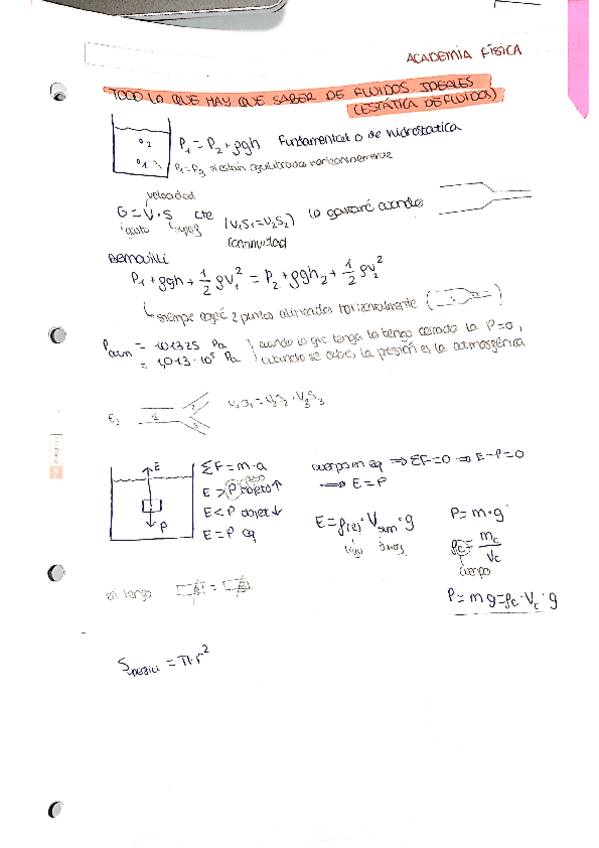 ACADEMIA FÍSICA
TODO LO QUE HAY QUE SABER DE FLUIDOS IDEALES
(ESTÁTICA DE FLUIDOS)
P₁ = P₂ + ρgh Fundamental de hidrostatica
P₁ = P₃ si están equilibrados horizontalmente
velocidad
G = V · S cte (V₁S₁ = V₂S₂) lo gastaré cuando
gasto
continuidad
Bernoulli
P₁ + ρgh₁ + 1/2 ρv₁² = P₂ + ρgh₂ + 1/2 ρv₂²
siempre cogé 2 puntos alineados horizontalmente
Patm = 101325 Pa
= 1,013 · 10⁵ Pa
cuando lo que tenga lo tengo cerrado la P=0,
cuando se abre, la presión es la atmosférica
1 2 3 V₁S₁ = V₂S₂ · V₃S₃
E P
ΣF = m·a
E > P objeto ↑
E < P objet ↓
E = P eq
peso
cuerpo en eq ⇒ ΣF=0 ⇒ E-P=0
→ E = P
E = ρ · V · g
P = m · g
ρc = mc / Vc
cuerpo
P = m g = ρc · Vc · g
si tengo
S = π·r²